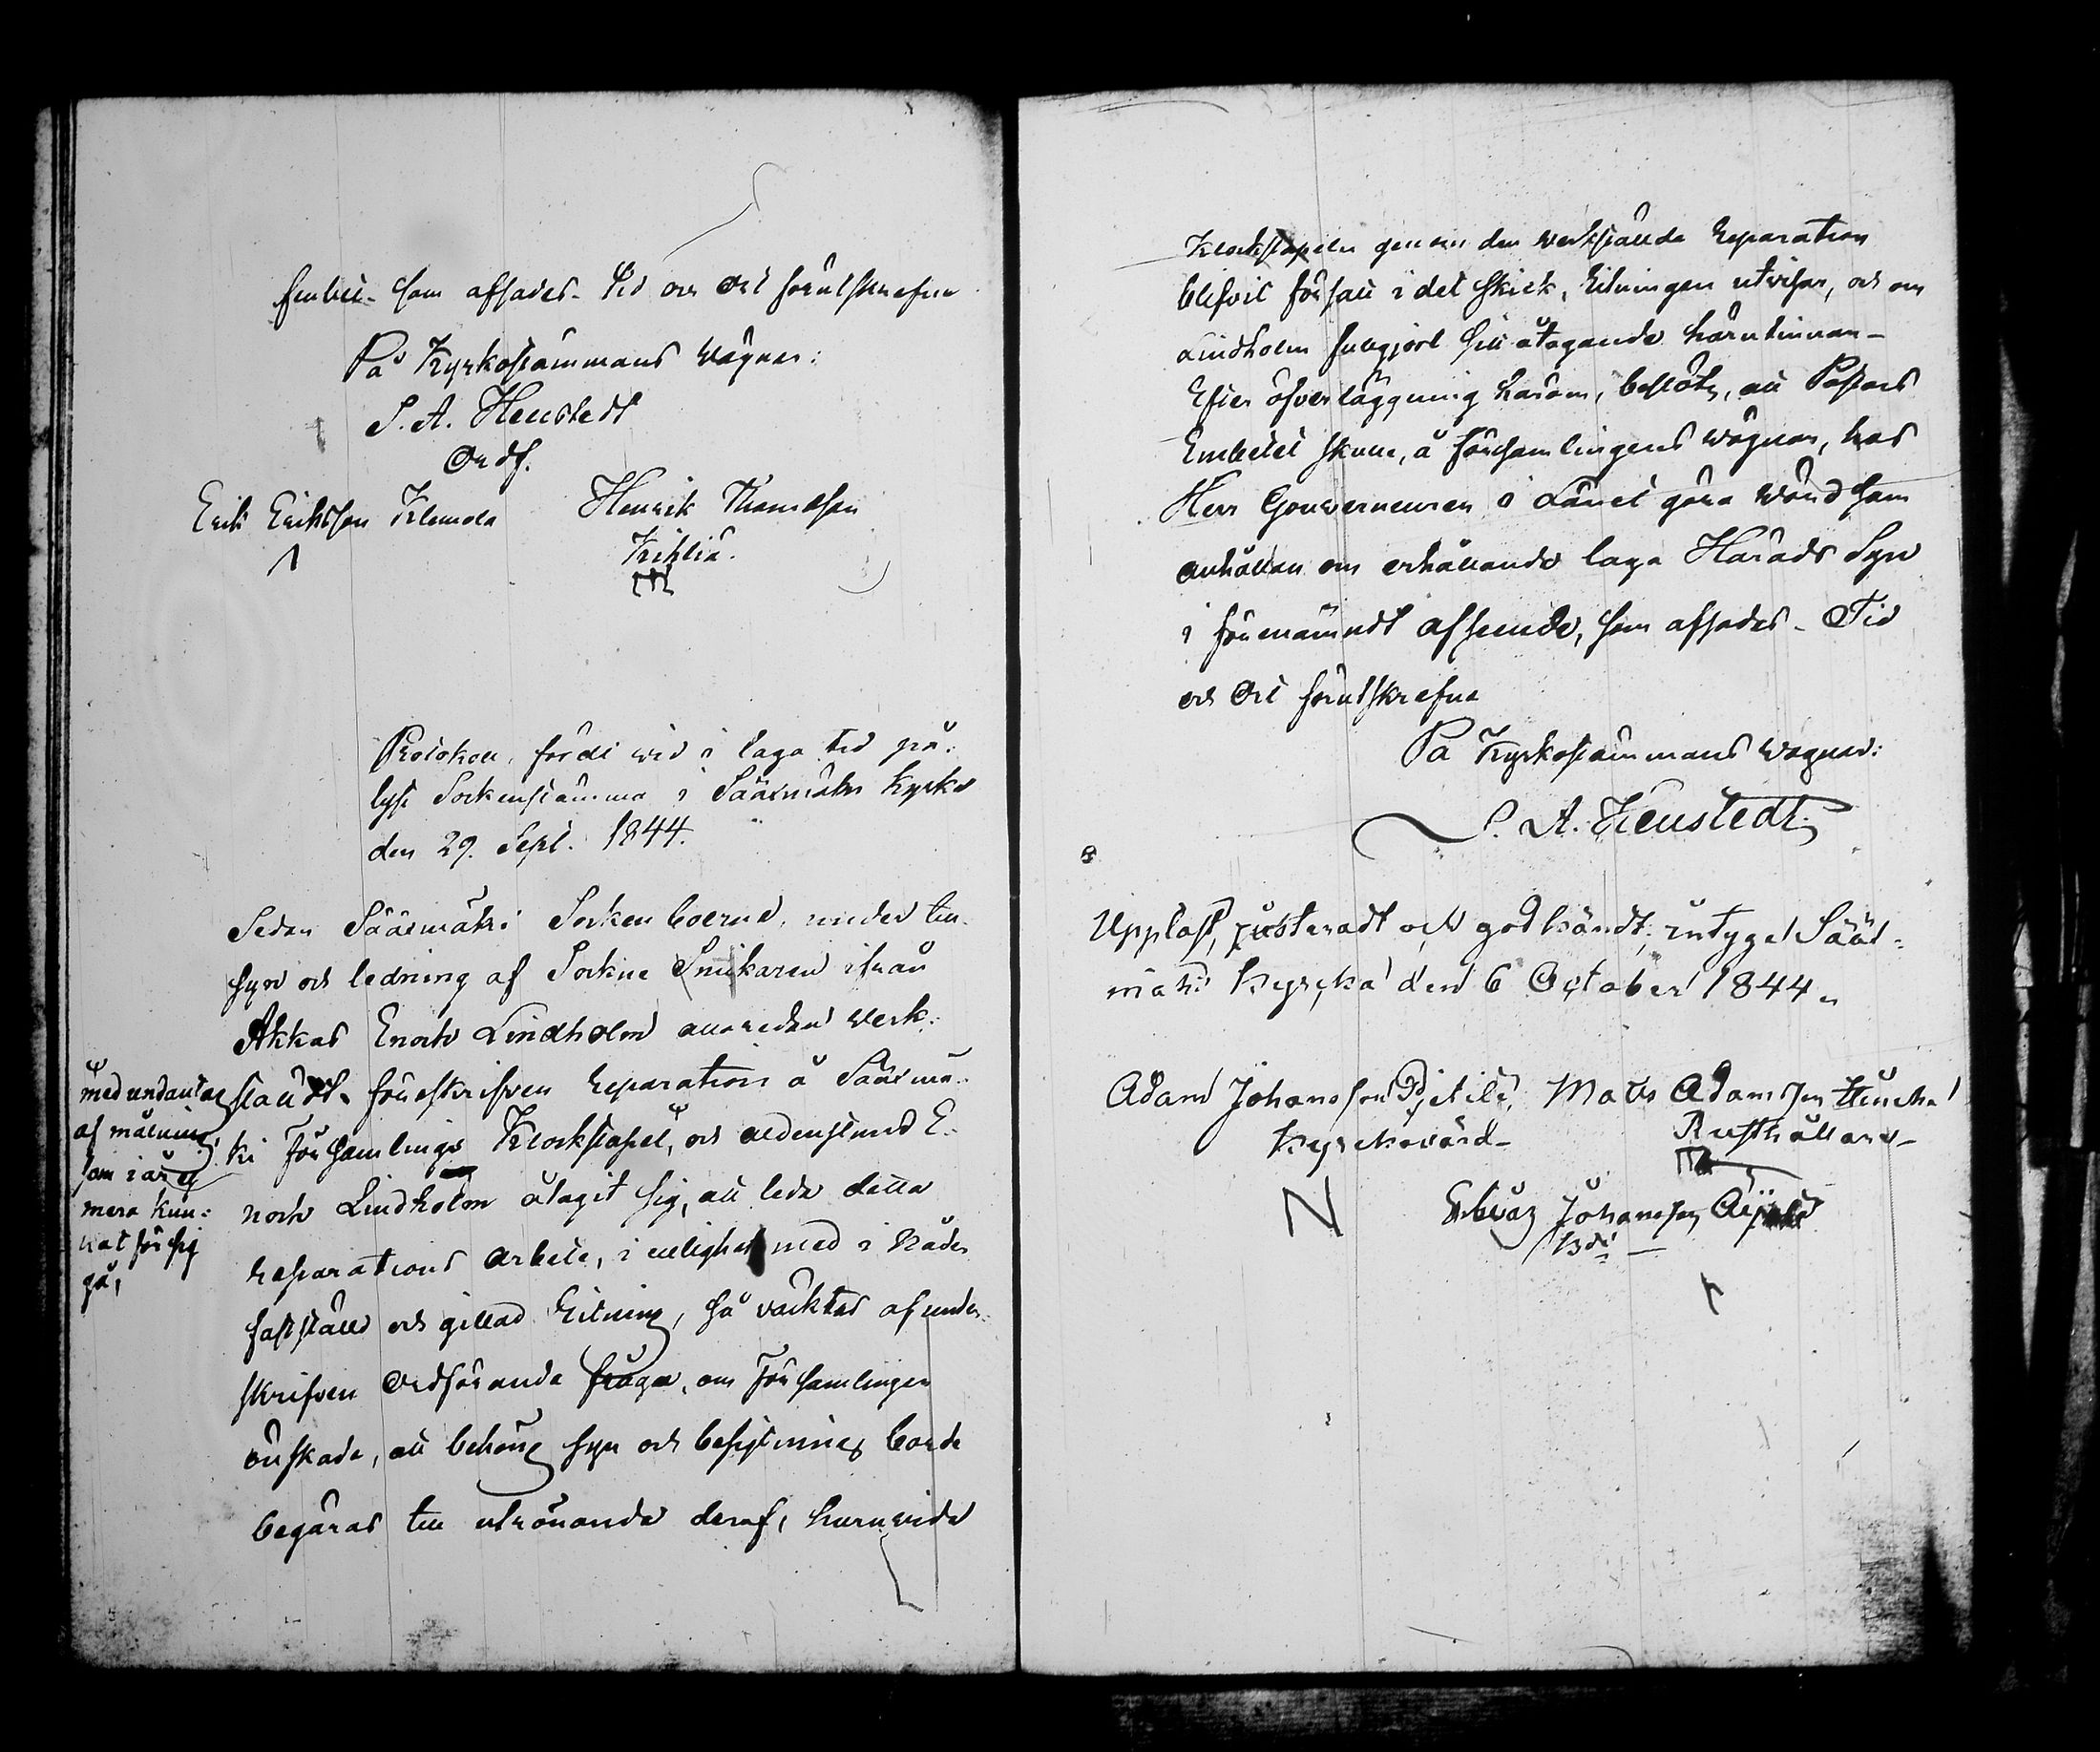 som afsades. Tid och Ort förutskrefne
På Kyrkostämmans vägnar:
S. A. Heustedt
Ordf.
Erik Eriksson Klemola
Henrik Thomasson
Krihliä.
Protokoll, fördt wid i laga tid på-
lyst Sockenstämma i Sääxmäki Kyrka
den 29. Sept. 1844.
Sedan Sääxmäki Sockenboerne, under till-
syn och ledning af Sockne Snickaren ifrån
Akkas Enoch Lindholm allaredan verk-
ställt föreskrifven reparation å Sääxmä-
ki Församlings Klockstapel, och alldenstund E-
noch Lindholm åtagit sig, att leda detta
reparations arbete, i enlighet med i Nåder
fastställd och gillad Ritning, så väcktes af under-
skrifven Ordförande fråga, om Församlingen
önskade, att behörig syn och besigtning borde
begäras till utrönande deraf, huruvida
med undantag
af målning,
som i år ej
mera kun-
nat för sig
gå,
Klockstapeln genom den verkställda Reparation
blifvit försatt i det skick, Ritningen utvisar, och om
Lindholm fullgjort sitt åtagande härutinnan-
Efter öfverläggning härom, beslöts, att Pastors
Embetet skulle, å Församlingens vägnar, hos
Herr Gouverneuren i Länet göra vördsam
anhållan om erhållande laga Härads Syn
i förenämndt afseende, som afsades. Tid
och Ort förutskrefne
På Kyrkostämmans vägnar:
S. A. Heustedt.
Uppläst, justeradt och godkändt, intygel Sääx-
mäki Kyrcka den 6 October 1844.
Adam Johansson Matts Adamsson
Kyrckovärd- Rusthållare-
N Johansson